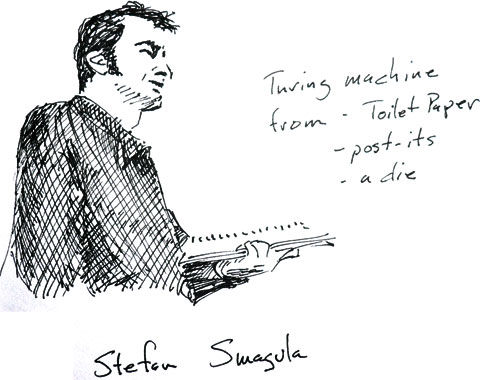 Turing machine
from - Toilet Paper
- post-its
- a die
Stefan Smagula